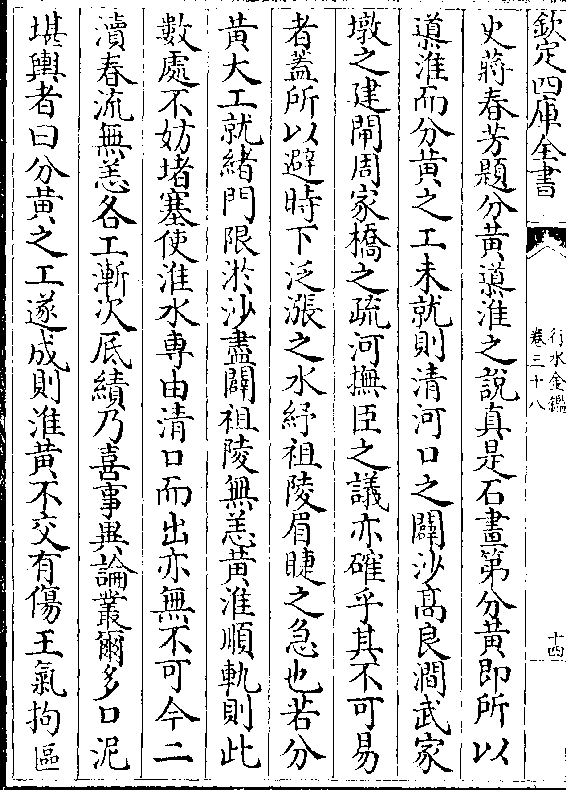 欽定四庫全書
行水金鑑
卷三十八
十四
史蔣春芳題分黄導淮之說真是石畫第分黄即所以
導淮而分黄之工未就則清河口之闢沙高良澗武家
墩之建閘周家橋之疏河撫臣之議亦確乎其不可易
者蓋所以避時下泛漲之水紓祖陵眉睫之急也若分
黄大工就緒門限淤沙盡闢祖陵無恙黄淮順軌則此
數處不妨堵塞使淮水專由清口而出亦無不可今二
瀆春流無恙各工漸次底績乃喜事異論叢爾多口泥
堪輿者曰分黄之工遂成則淮黄不交有傷王氣拘區